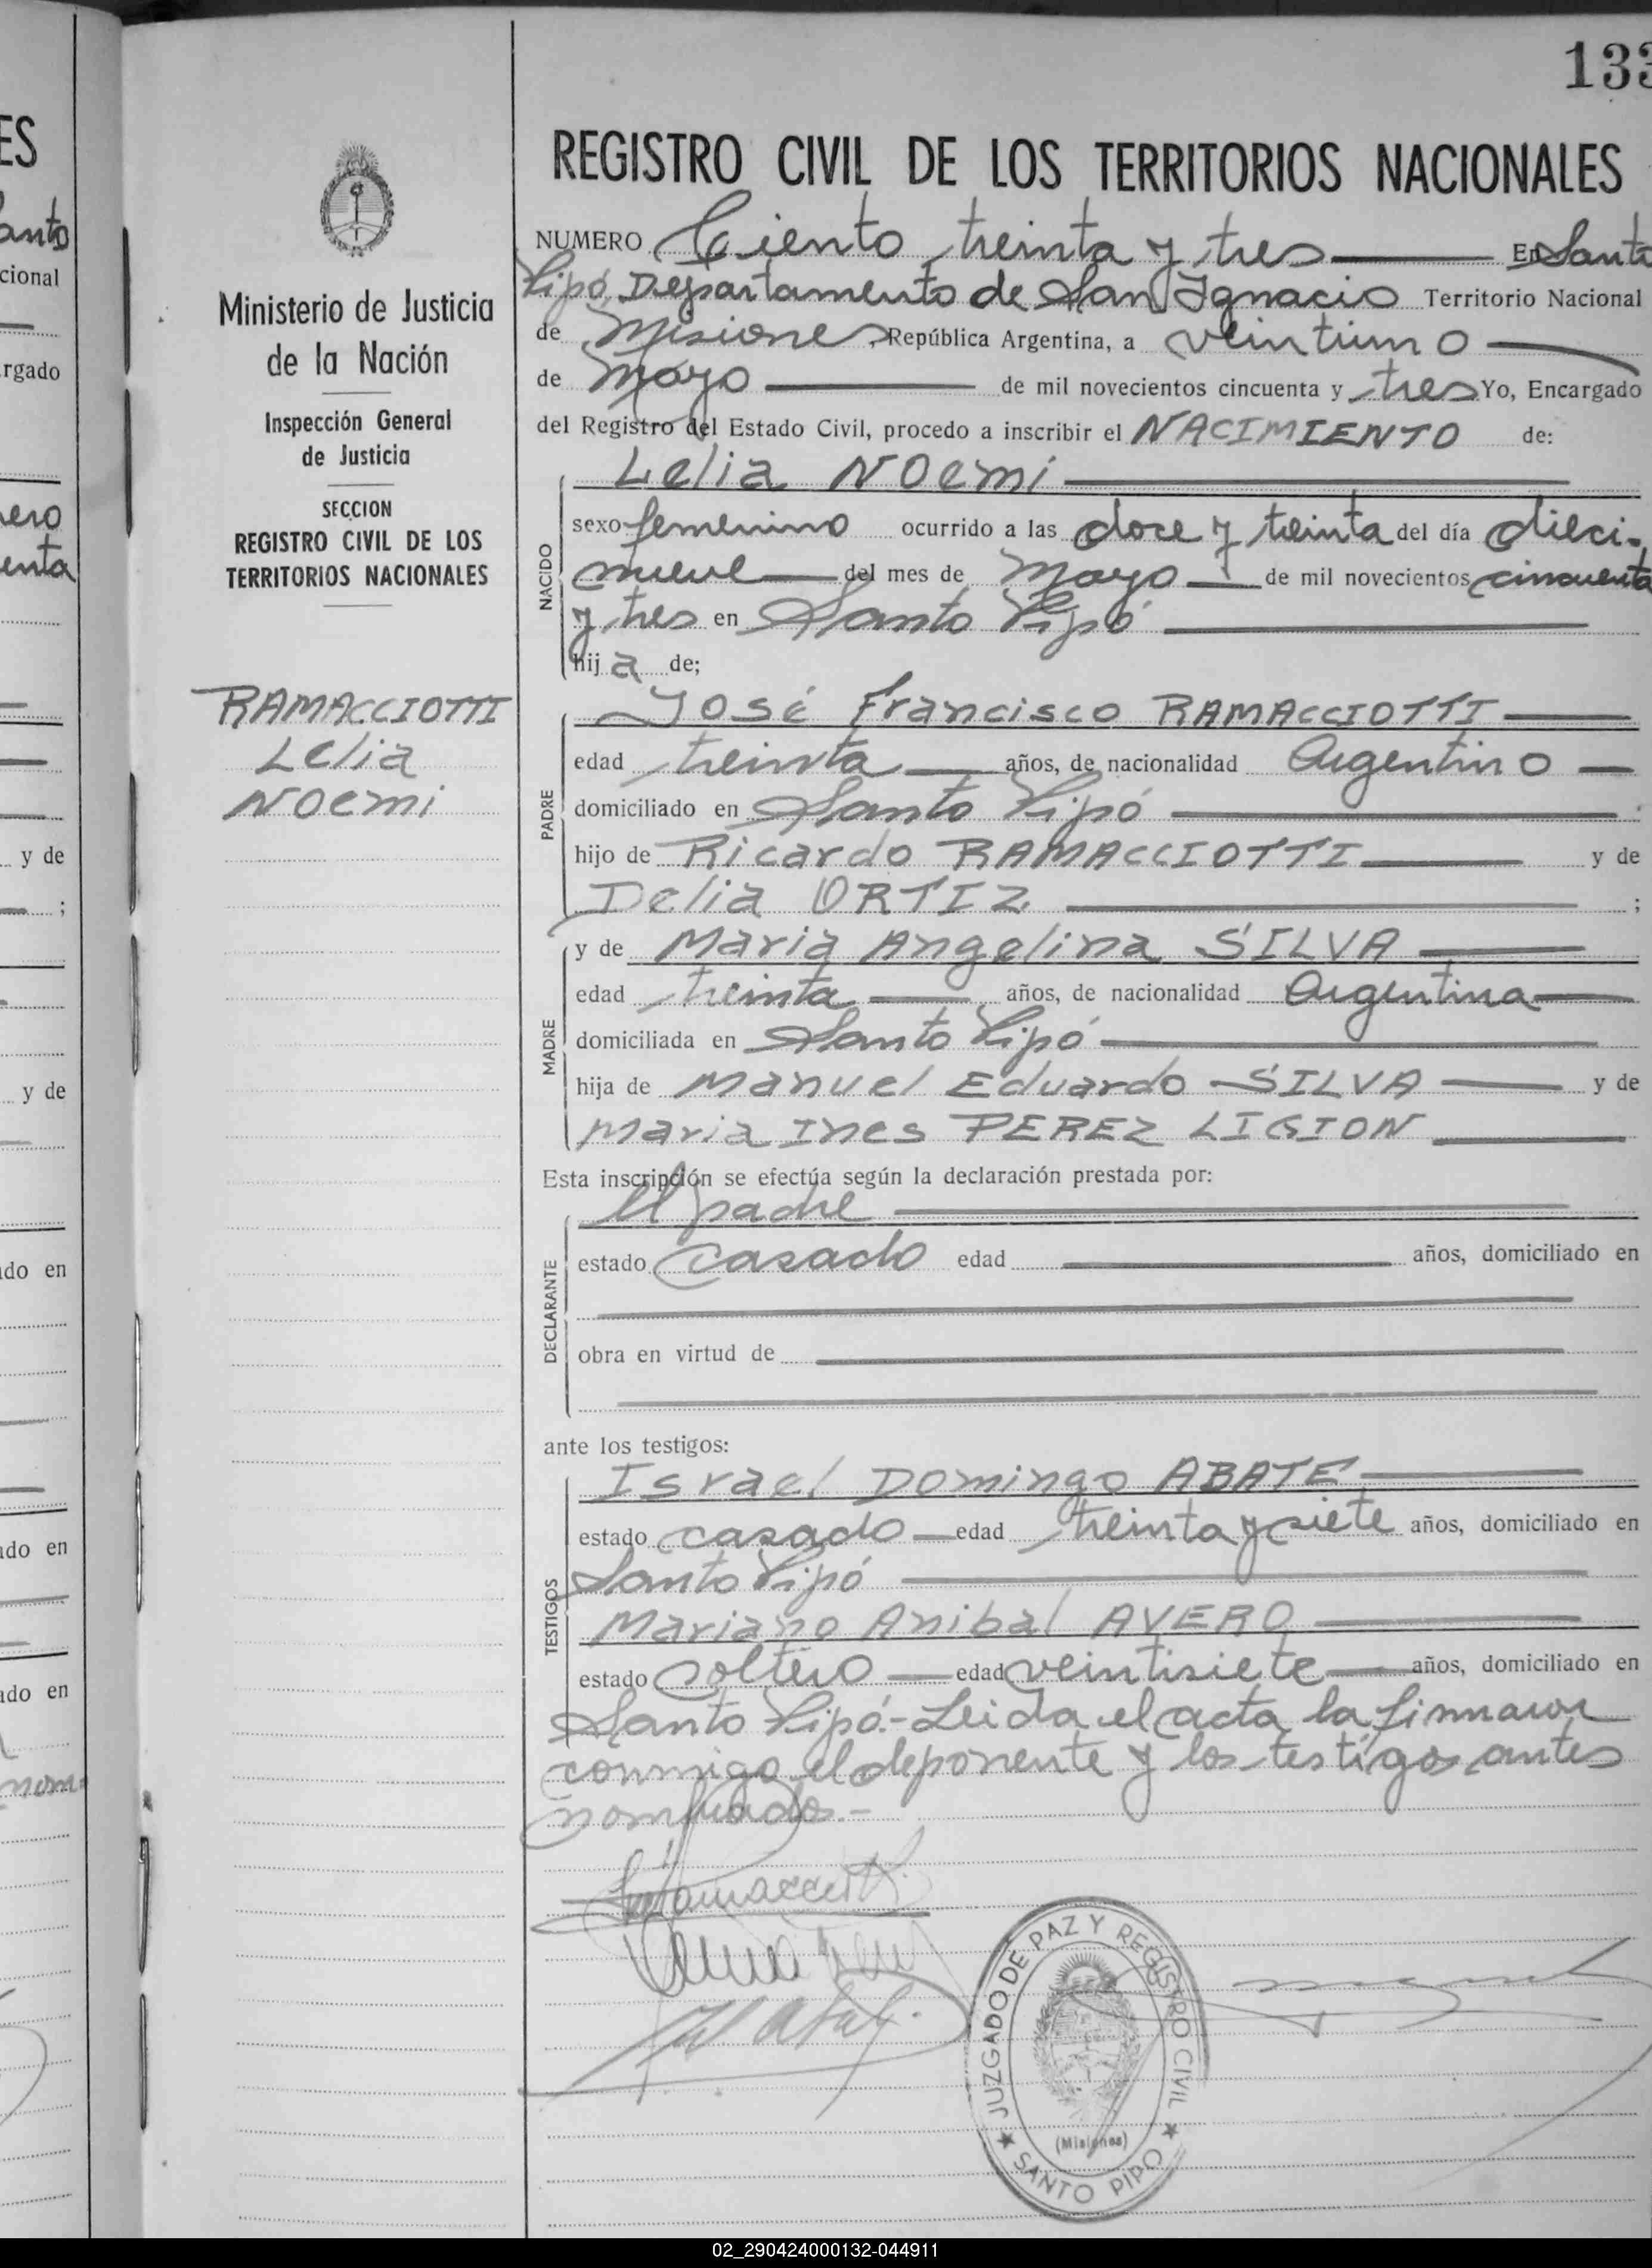 133
REGISTRO CIVIL DE LOS TERRITORIOS NACIONALES
NUMERO Ciento treinta y tres En Santo
Pipó, Departamento de San Ignacio Territorio Nacional
de Misiones, República Argentina, a veintiuno
de Mayo de mil novecientos cincuenta y tres Yo, Encargado
del Registro del Estado Civil, procedo a inscribir el NACIMIENTO de:
Lelia Noemi
NACIDO
sexo femenino ocurrido a las doce y treinta del día dieci-
nueve del mes de Mayo de mil novecientos cincuenta
y tres en Santo Pipó
hij a de;
PADRE
José Francisco RAMACCIOTTI
edad treinta años, de nacionalidad Argentino
domiciliado en Santo Pipó
hijo de Ricardo RAMACCIOTTI y de
Delia ORTIZ ;
MADRE
y de Maria Angelina SILVA
edad treinta años, de nacionalidad Argentina
domiciliada en Santo Pipó
hija de Manuel Eduardo SILVA y de
Maria Ines PEREZ LIGION
Esta inscripción se efectúa según la declaración prestada por:
DECLARANTE
El padre
estado casado edad años, domiciliado en
obra en virtud de
ante los testigos:
TESTIGOS
Israel Domingo ABATE
estado casado edad treinta y siete años, domiciliado en
Santo Pipó
Mariano Anibal AVERO
estado soltero edad veintisiete años, domiciliado en
Santo Pipó.- Leida el acta la firmaron
conmigo el deponente y los testigos antes
nombrados.-
JUZGADO DE PAZ Y REGISTRO CIVIL
(Misiones)
★ SANTO PIPO ★
Ministerio de Justicia
de la Nación
Inspección General
de Justicia
SECCION
REGISTRO CIVIL DE LOS
TERRITORIOS NACIONALES
RAMACCIOTTI
Lelia
Noemi
ES
anto
cional
rgado
ero
enta
y de
;
y de
do en
do en
do en
nom
02_290424000132-044911